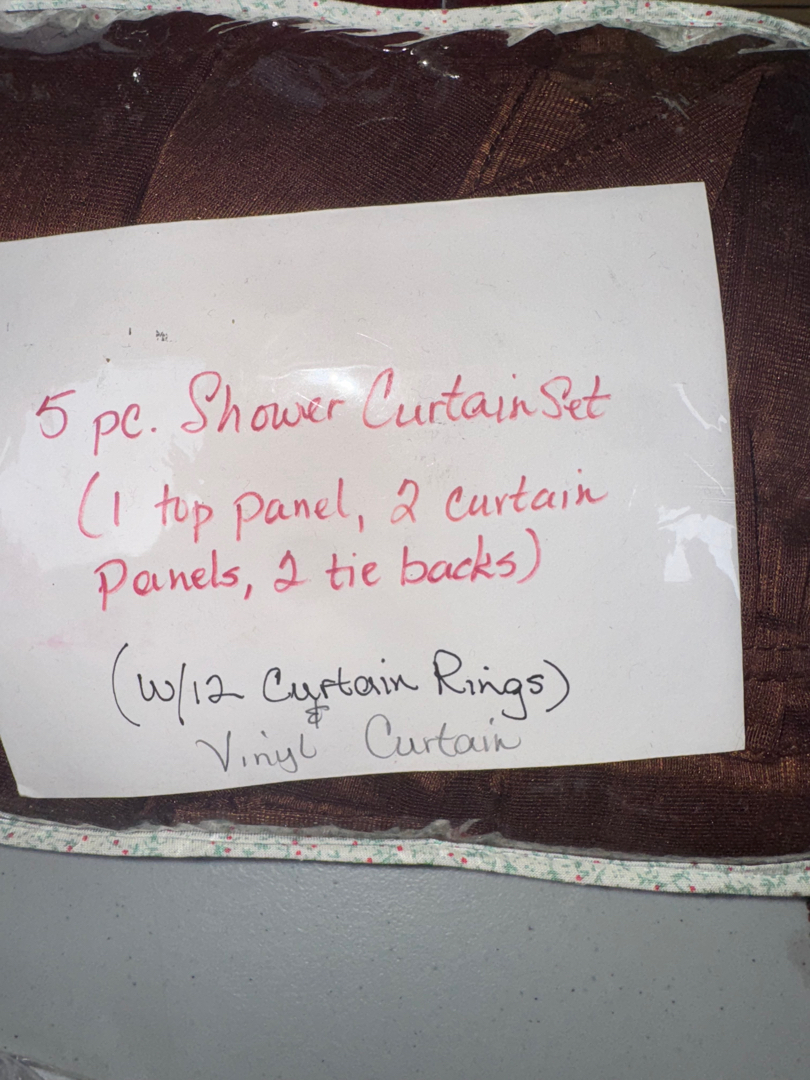 5 pc. Shower Curtain Set
(1 top panel, 2 curtain
panels, 2 tie backs)
(w/12 Curtain Rings)
&
Vinyl Curtain